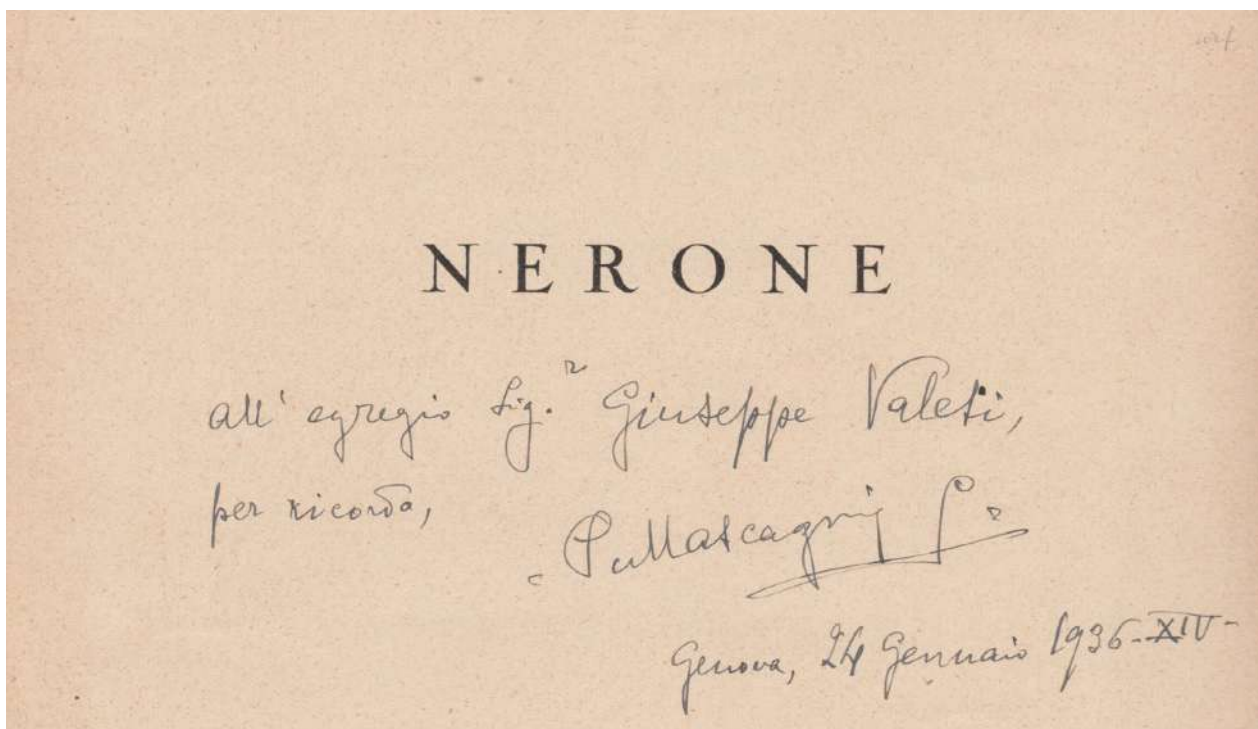 NERONE
all' egregio Sig.r Giuseppe Valeti,
per ricordo,
P. Mascagni
Genova, 24 Gennaio 1936-XIV-